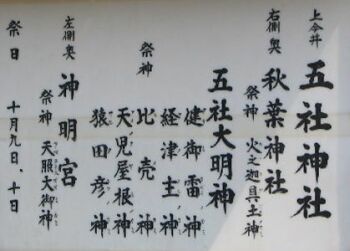 上今井
五社神社
右側奥
秋葉神社
祭神 火之迦具土神
五社大明神
祭神
健御雷神
経津主神
比売神
天児屋根神
猿田彦神
左側奥
神明宮
祭神 天照大御神
祭日 十月九日、十日